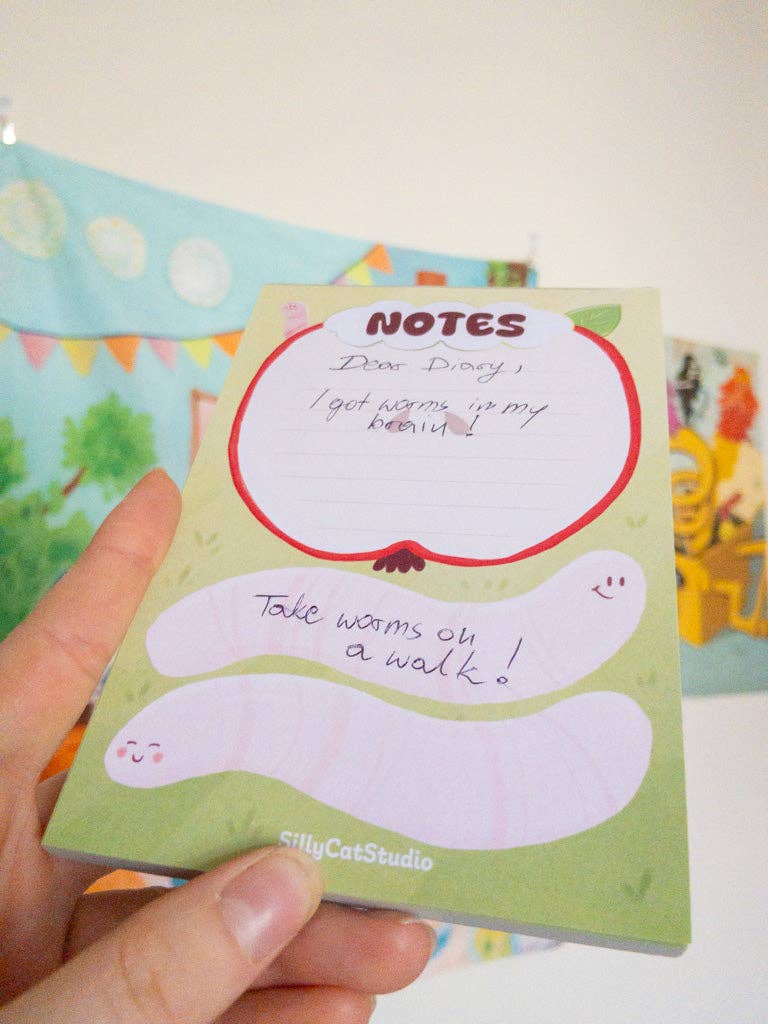 NOTES
Dear Diary,
I got worms in my
brain!
Take worms on
a walk!
SillyCatStudio